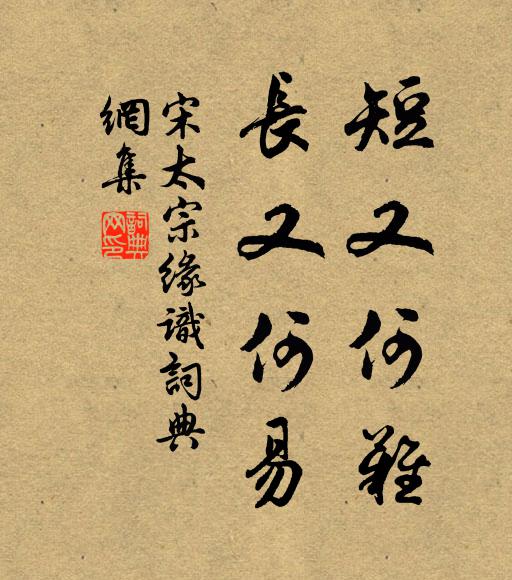 短又何難
長又何易
宋太宗緣識詞典
網集
詞典網印